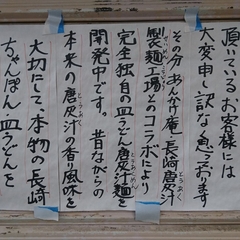 頂いているお客様には
大変申し訳なく思っております
その分あんかけ庵、長崎唐灰汁
製麺工場とのコラボにより
完全独自の皿うどん唐灰汁麺を
開発中です。昔ながらの
本来の唐灰汁の香り風味を
大切にして、本物の長崎
ちゃんぽん皿うどんを